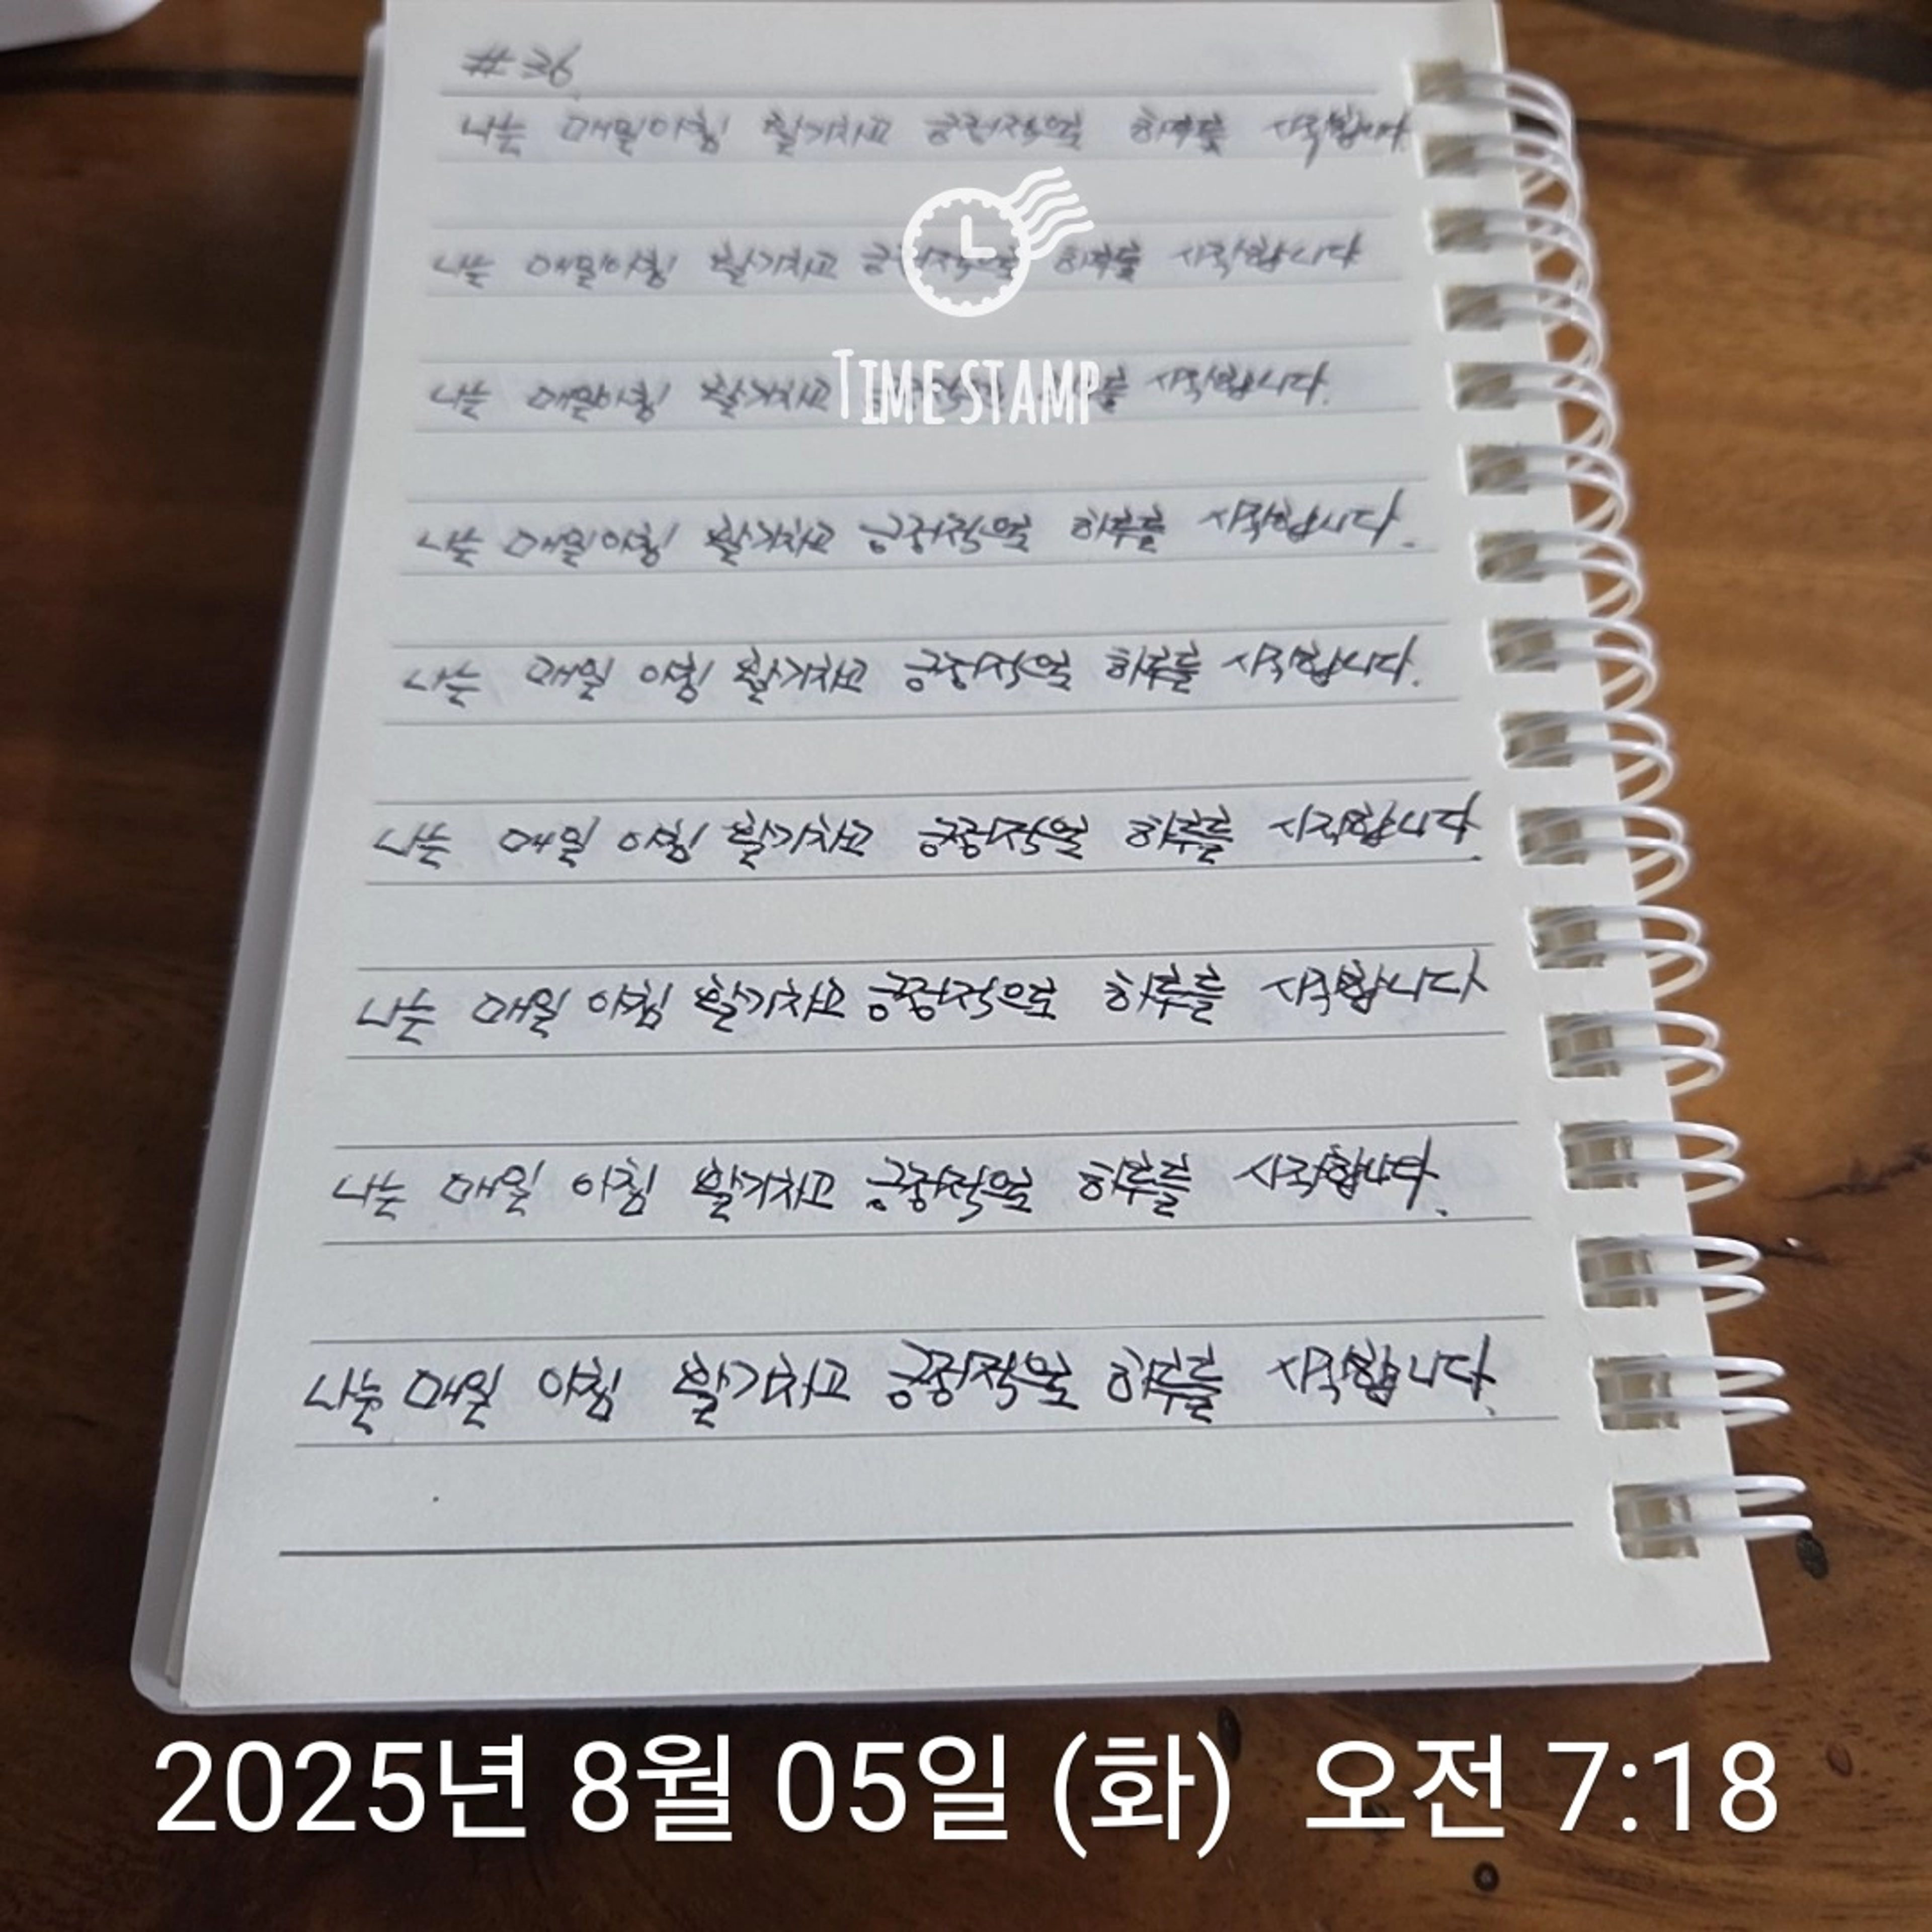 #36
나는 매일아침 활기차고 긍정적으로 하루를 시작합니다.
나는 매일아침 활기차고 긍정적으로 하루를 시작합니다
TIME STAMP
나는 매일아침 활기차고 하루를 시작합니다.
나는 매일아침 활기차고 긍정적으로 하루를 시작합니다.
나는 매일 아침 활기차고 긍정적으로 하루를 시작합니다.
나는 매일 아침 활기차고 긍정적으로 하루를 시작합니다.
나는 매일 아침 활기차고 긍정적으로 하루를 시작합니다
나는 매일 아침 활기차고 긍정적으로 하루를 시작합니다.
나는 매일 아침 활기차고 긍정적으로 하루를 시작합니다.
2025년 8월 05일 (화) 오전 7:18